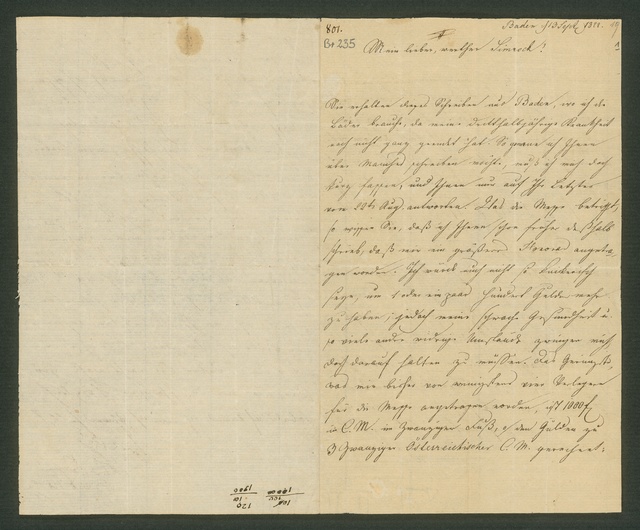 801.
Baden, 13 Sept. 1822.
Br 235
Mein lieber, werther Simrock!
Sie erhalten dieses Schreiben aus Baden, wo ich die
Bäder brauche, da meine dritthalbjährige Krankheit
noch nicht ganz geendet hat. So gerne ich Ihnen
über Manches schreiben möchte, muß ich mich doch
kurz fassen, und Ihnen nur auf Ihr Letztes
vom 22ten Aug. antworten. Was die Messe betrifft,
so wissen Sie, daß ich Ihnen schon früher deßhalb
schrieb, daß mir ein größeres Honorar angetra-
gen worden. Ich würde auch nicht so
seyn, um 1 oder ein paar hundert Gulden mehr
zu haben; jedoch meine schwache Gesundheit u.
so viele andre widrige Umstände zwingen mich,
doch darauf halten zu müssen. Das Geringste,
was mir bisher von wenigstens vier Verlegern
für die Messe angetragen worden, ist 1000 f
in C. M. im Zwanziger Fuß, o den Gulden zu
3 Zwanziger Österreichischer C. M. gerechnet.
120
10
1200